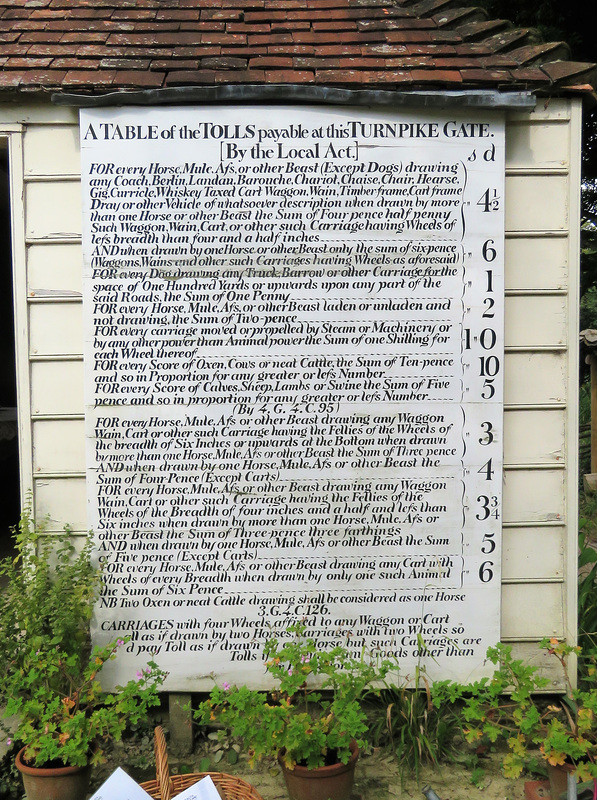 A TABLE of the TOLLS payable at this TURNPIKE GATE.
[By the Local Act.] s d
FOR every Horse, Mule, Afs, or other Beast (Except Dogs) drawing
any Coach, Berlin, Landau, Barouche, Chariot, Chaise, Chair, Hearse,
Gig, Curricle, Whiskey Taxed Cart Waggon, Wain, Timber frame, Cart frame
Dray or other Vehicle of whatsoever description when drawn by more
than one Horse or other Beast the Sum of Four pence half penny 4½
Such Waggon, Wain, Cart, or other such Carriage having Wheels of
lefs breadth than four and a half inches
AND when drawn by one Horse or other Beast only the sum of sixpence 6
(Waggons, Wains and other such Carriages having Wheels as aforesaid)
FOR every Dog drawing any Truck, Barrow or other Carriage for the
space of One Hundred Yards or upwards upon any part of the 1
said Roads, the Sum of One Penny
FOR every Horse, Mule, Afs, or other Beast laden or unladen and
not drawing, the Sum of Two-pence 2
FOR every carriage moved or propelled by Steam or Machinery or
by any other power than Animal power the Sum of one Shilling for 1·0
each Wheel thereof
FOR every Score of Oxen, Cows or neat Cattle, the Sum of Ten-pence
and so in Proportion for any greater or lefs Number 10
FOR every Score of Calves, Sheep, Lambs or Swine the Sum of Five
pence and so in proportion for any greater or lefs Number 5
(By 4. G. 4. C. 95)
FOR every Horse, Mule, Afs or other Beast drawing any Waggon
Wain, Cart or other such Carriage having the Fellies of the Wheels of
the breadth of Six Inches or upwards at the Bottom when drawn 3
by more than one Horse, Mule, Afs or other Beast the Sum of Three pence
AND when drawn by one Horse, Mule, Afs or other Beast the
Sum of Four-Pence (Except Carts) 4
FOR every Horse, Mule, Afs or other Beast drawing any Waggon
Wain, Cart or other such Carriage having the Fellies of the
Wheels of the Breadth of four inches and a half and lefs than 3¾
Six inches when drawn by more than one Horse, Mule, Afs or
other Beast the Sum of Three-pence three farthings
AND when drawn by one Horse, Mule, Afs or other Beast the Sum
of Five pence (Except Carts) 5
FOR every Horse, Mule, Afs or other Beast drawing any Cart with
Wheels of every Breadth when drawn by only one such Animal 6
the Sum of Six Pence
NB Two Oxen or neat Cattle drawing shall be considered as one Horse
3. G. 4. C. 126.
CARRIAGES with four Wheels affixed to any Waggon or Cart
all as if drawn by two Horses, Carriages with two Wheels so
pay Toll as if drawn Horse but such Carriages are
Tolls Goods other than